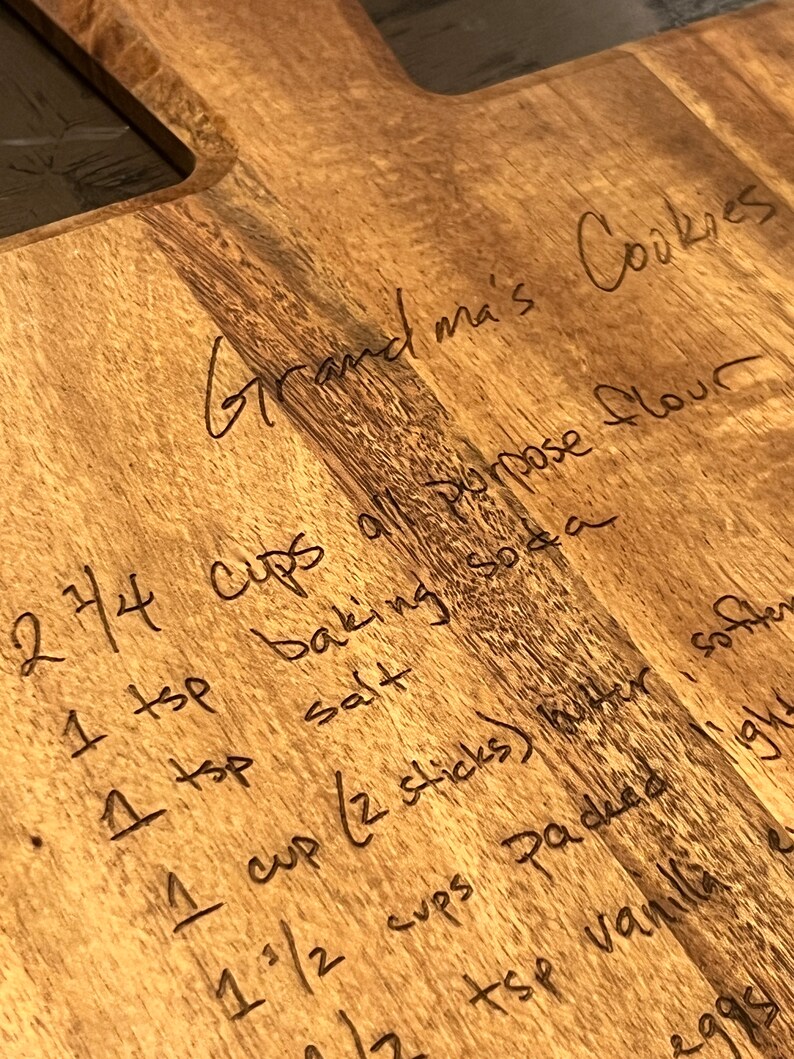 Grandma's Cookies
2 1/4 cups all purpose flour
1 tsp baking soda
1 tsp salt
1 cup (2 sticks) butter, soften
1 1/2 cups packed light
1/2 tsp vanilla
eggs